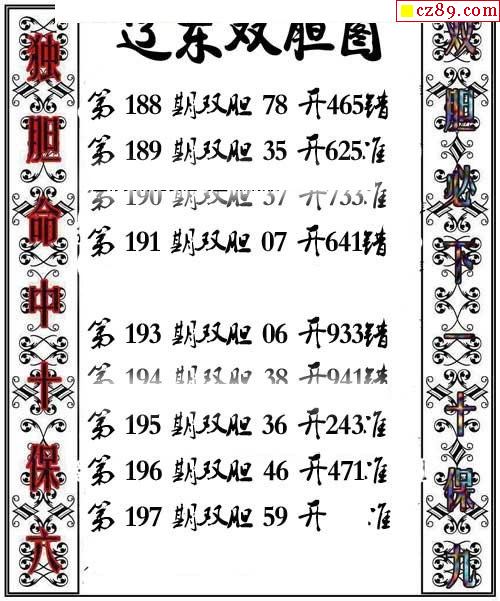 cz89.com
辽东双胆图
独胆命中十保六
第 188 期双胆 78 开465错
第 189 期双胆 35 开625准
第 190 期双胆 37 开733准
第 191 期双胆 07 开641错
第 193 期双胆 06 开933错
第 194 期双胆 38 开941错
第 195 期双胆 36 开243准
第 196 期双胆 46 开471准
第 197 期双胆 59 开 准
双胆必下一十保九